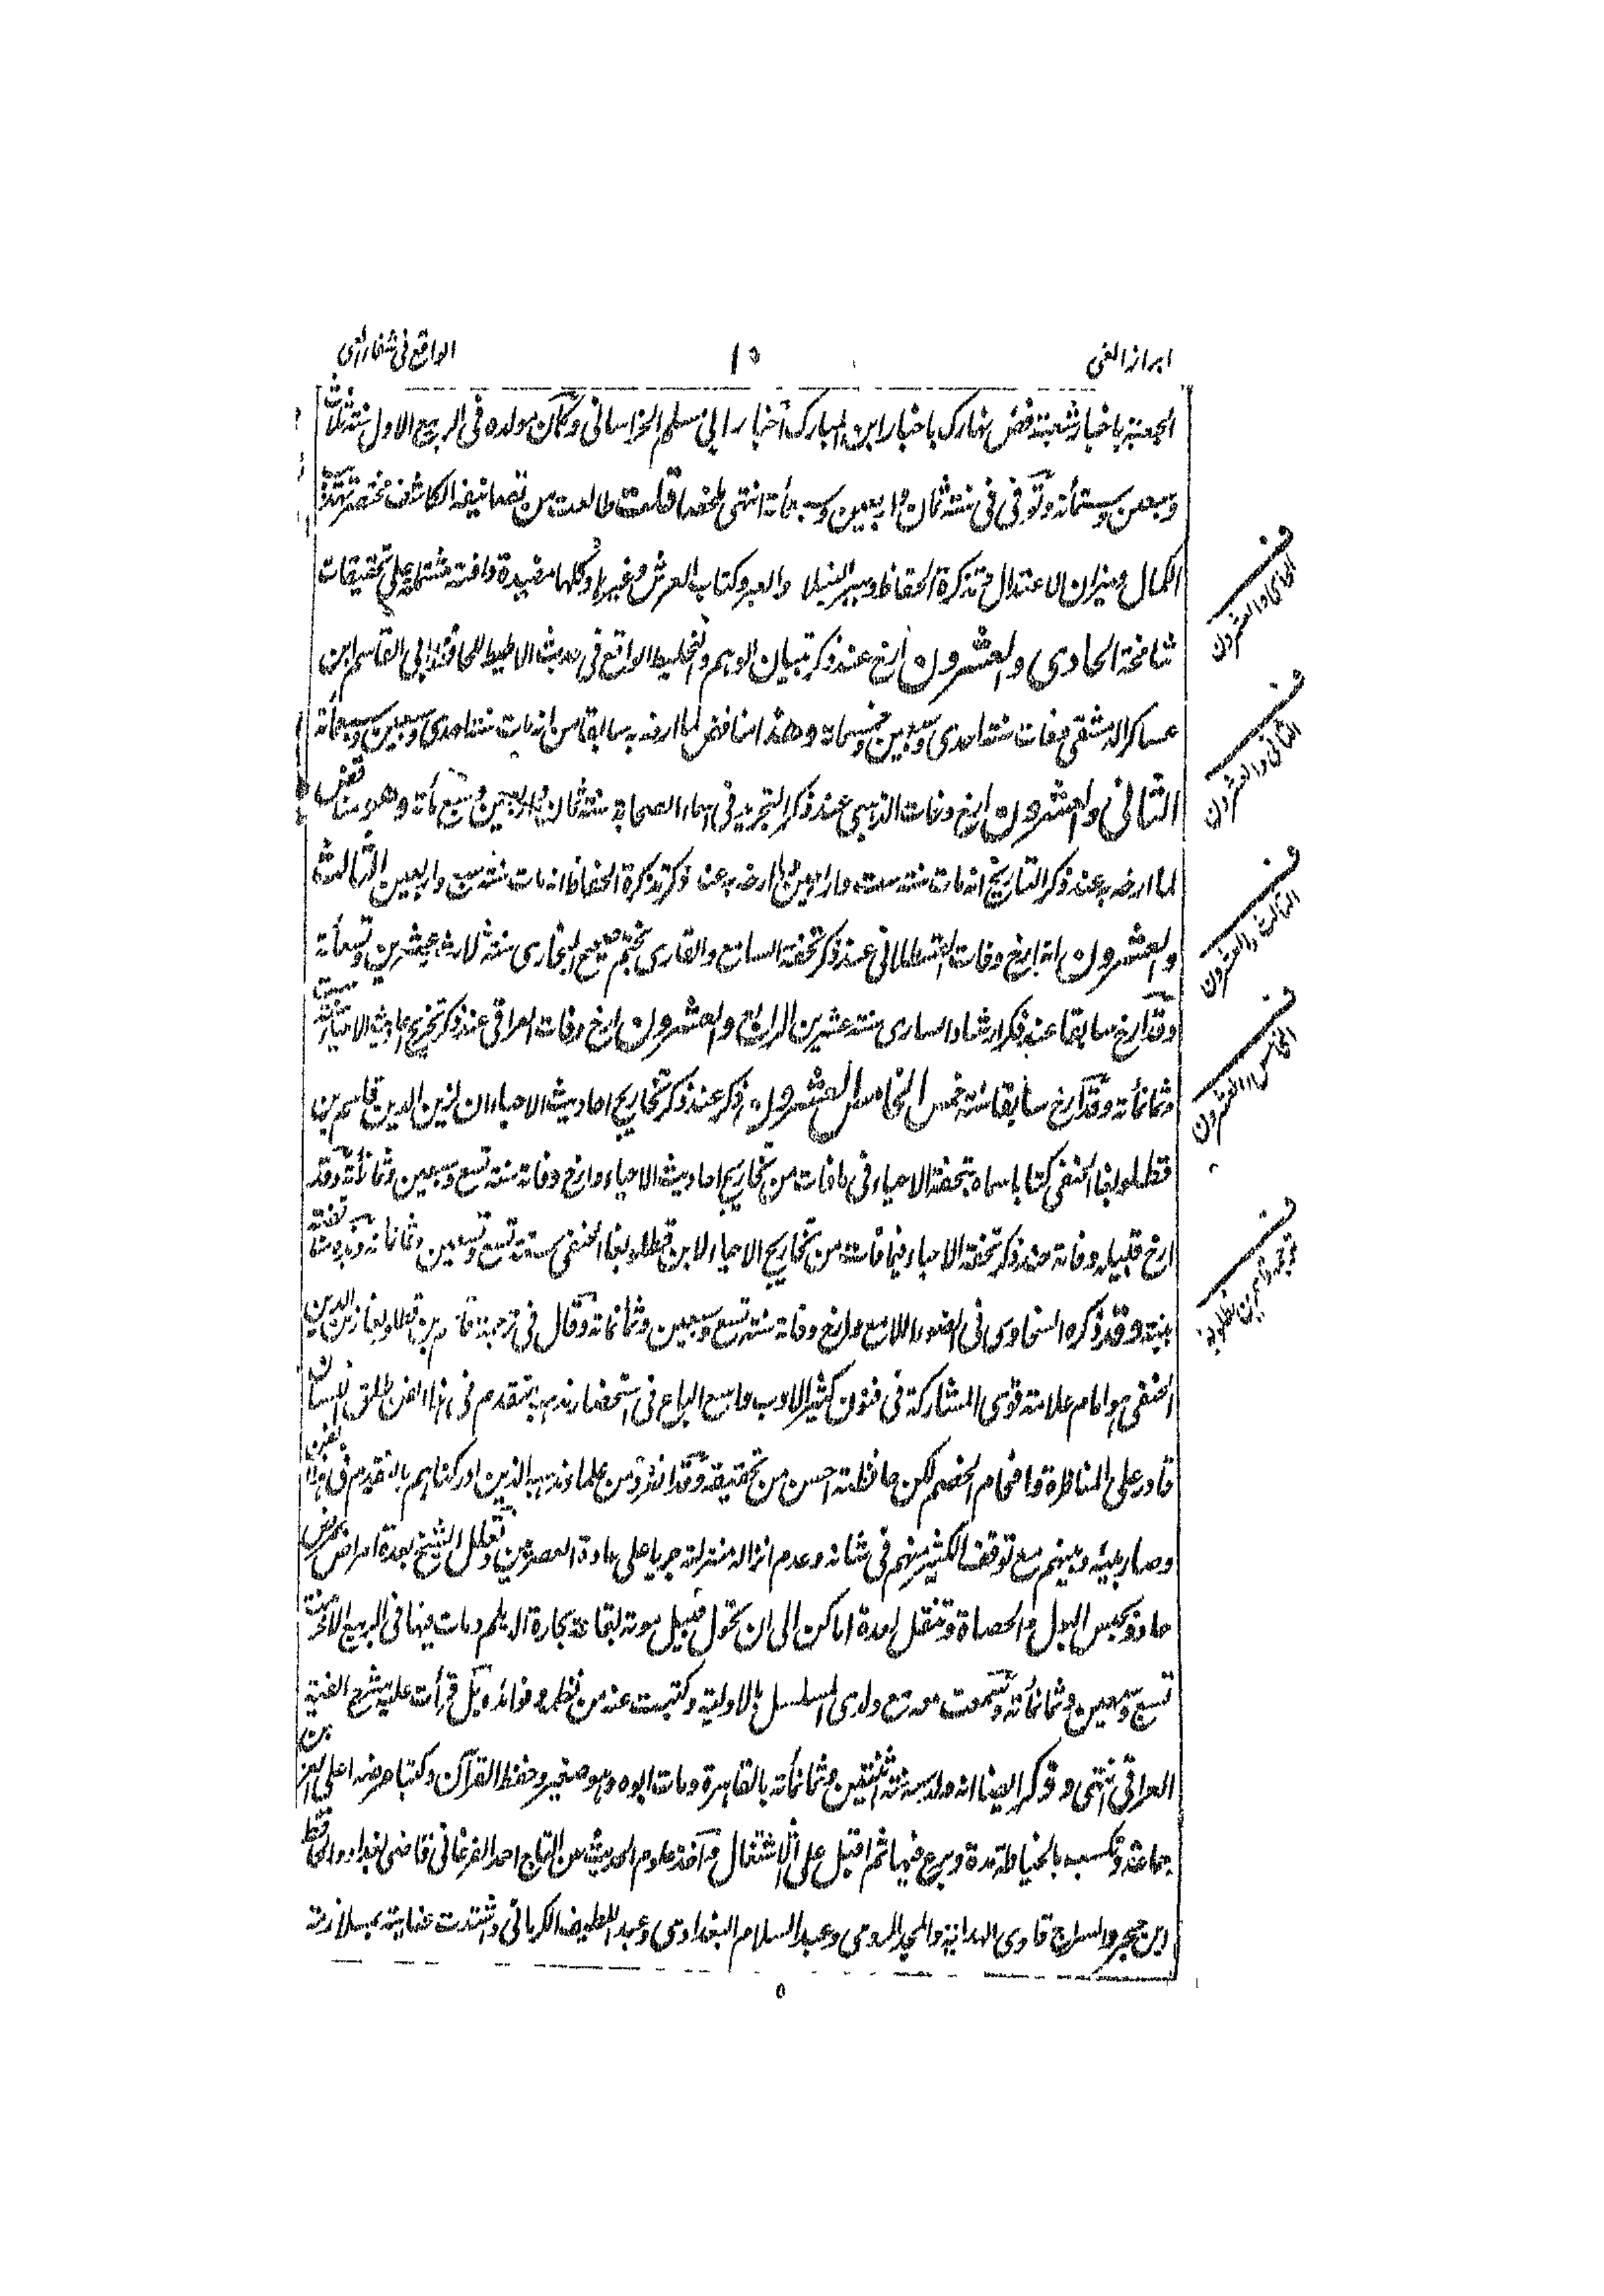 ابراز الغی
١٥
الواقع فی شفاء العی
الجعبة باخبار شعبة قض نهارك باخبار ابن المبارك اخبار ابی مسلم الخراسانی وکان مولده فی الربیع الاول سنة ثلاث
وسبعین وستمائة وتوفی فی سنة ثمان واربعین وسبعمائة انتهی ملخصا قلت طالعت من تصانیفه الکاشف مختصر تهذیب
الکمال ومیزان الاعتدال وتذکرة الحفاظ وسیر النبلاء والعبر وکتاب العرش وغیرها وکلها مفیدة نافعة مشتملة علی تحقیقات
شامخة الحادی والعشرون ارخ عند ذکر تبیان الوهم والتخلیط الواقع فی حدیث الاطیط للحافظ ابی القاسم ابن
عساکر الدمشقی وفات سنة احدی وسبعین وخمسمائة وهذا مناقض لما ارخه به سابقا من انه مات سنة احدی وسبعین وسبعمائة
الثانی والعشرون ارخ وفات الذهبی عند ذکر التجرید فی اسماء الصحابة سنة ثمان واربعین وسبع مائة وهو مناقض
لما ارخه به عند ذکر التاریخ انه مات سنة ست واربعین ولما ارخه به عند ذکر تذکرة الحفاظ انه مات سنة سبع واربعین الثالث
والعشرون انه ارخ وفات القسطلانی عند ذکر تحفة السامع والقاری بختم صحیح البخاری سنة ثلاث وعشرین وتسعمائة
وقد ارخ سابقا عند ذکر ارشاد الساری سنة عشرین الرابع والعشرون ارخ وفات العراقی عند ذکر تخریج احادیث الاحیاء سنة ست
وثمانمائة وقد ارخ سابقا سنة خمس الخامس والعشرون ذکر عند ذکر تخاریج احادیث الاحیاء ان لزین الدین قاسم بن
قطلوبغا الحنفی کتابا سماه بتحفة الاحیاء فی ما فات من تخاریج احادیث الاحیاء وارخ وفاته سنة تسع وسبعین وثمانمائة وقد
ارخ قبیله وفاته عند ذکر تحفة الاحیاء فیما فات من تخاریج الاحیاء لابن قطلوبغا الحنفی سنة تسع وتسعین وثمانمائة وهذه مناقضة
بینة وقد ذکره السخاوی فی الضوء اللامع وارخ وفاته سنة تسع وسبعین وثمانمائة وقال فی ترجمة قاسم بن قطلوبغا زین الدین
الحنفی هو امام علامة قوی المشارکة فی فنون کثیر الادب واسع الباع فی استحضار مذهبه متقدم فی هذا الفن طلق اللسان
قادر علی المناظرة وافحام الخصم لکن حافظته احسن من تحقیقه وقد انفرد من علماء مذهبه الذین ادرکناهم بالتقدم فی هذا الفن
وصار بینه وبینهم مع توقف الکثیر منهم فی شانه وعدم انزاله منزلته جریا علی عادة العصریین وتعلل الشیخ بعدة امراض بمرض
حاد وبحبس البول والحصاة وتنقل لعدة اماکن الی ان تحول قبیل موته بقاعة بحارة الدیلم ومات فیها فی الربیع الآخر سنة
تسع وسبعین وثمانمائة وسمعت معه مع ولدی المسلسل بالاولیة وکتبت عنه من نظمه وفوائده بل قرأت علیه شرح الفیة
العراقی انتهی وذکر ایضا انه ولد سنة اثنتین وثمانمائة بالقاهرة ومات ابوه وهو صغیر وحفظ القرآن وکتبا عرضها علی العز بن
جماعة وتکسب بالخیاطة مدة وبرع فیها ثم اقبل علی الاشتغال واخذ علوم الحدیث عن التاج احمد الفرغانی قاضی بغداد والحافظ
ابن حجر والسراج قاری الهدایة والمجد الرومی وعبد السلام البغدادی وعبد اللطیف الکرمانی واشتدت عنایته بملازمة
الحادی والعشرون
الثانی والعشرون
الثالث والعشرون
الخامس والعشرون
ترجمة قاسم بن قطلوبغا